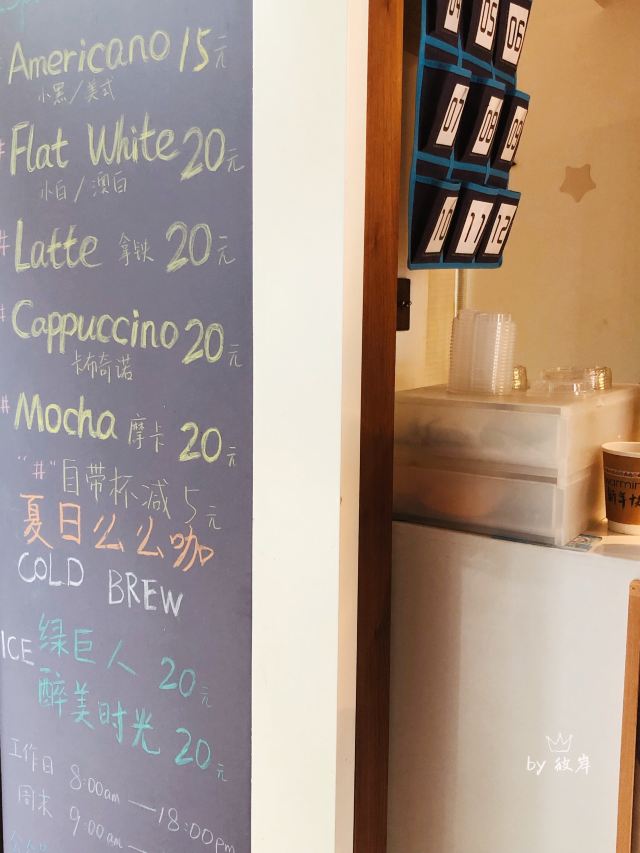 # Americano 15元
小黑/美式
# Flat White 20元
小白/澳白
# Latte 拿铁 20元
# Cappuccino 20元
卡布奇诺
# Mocha 摩卡 20元
"#"自带杯减5元
夏日么么咖
COLD BREW
ICE 绿巨人 20元
醉美时光 20元
工作日 8:00am—18:00pm
周末 9:00am—
04 05 06
07 08 09
10 11 12
by 彼岸